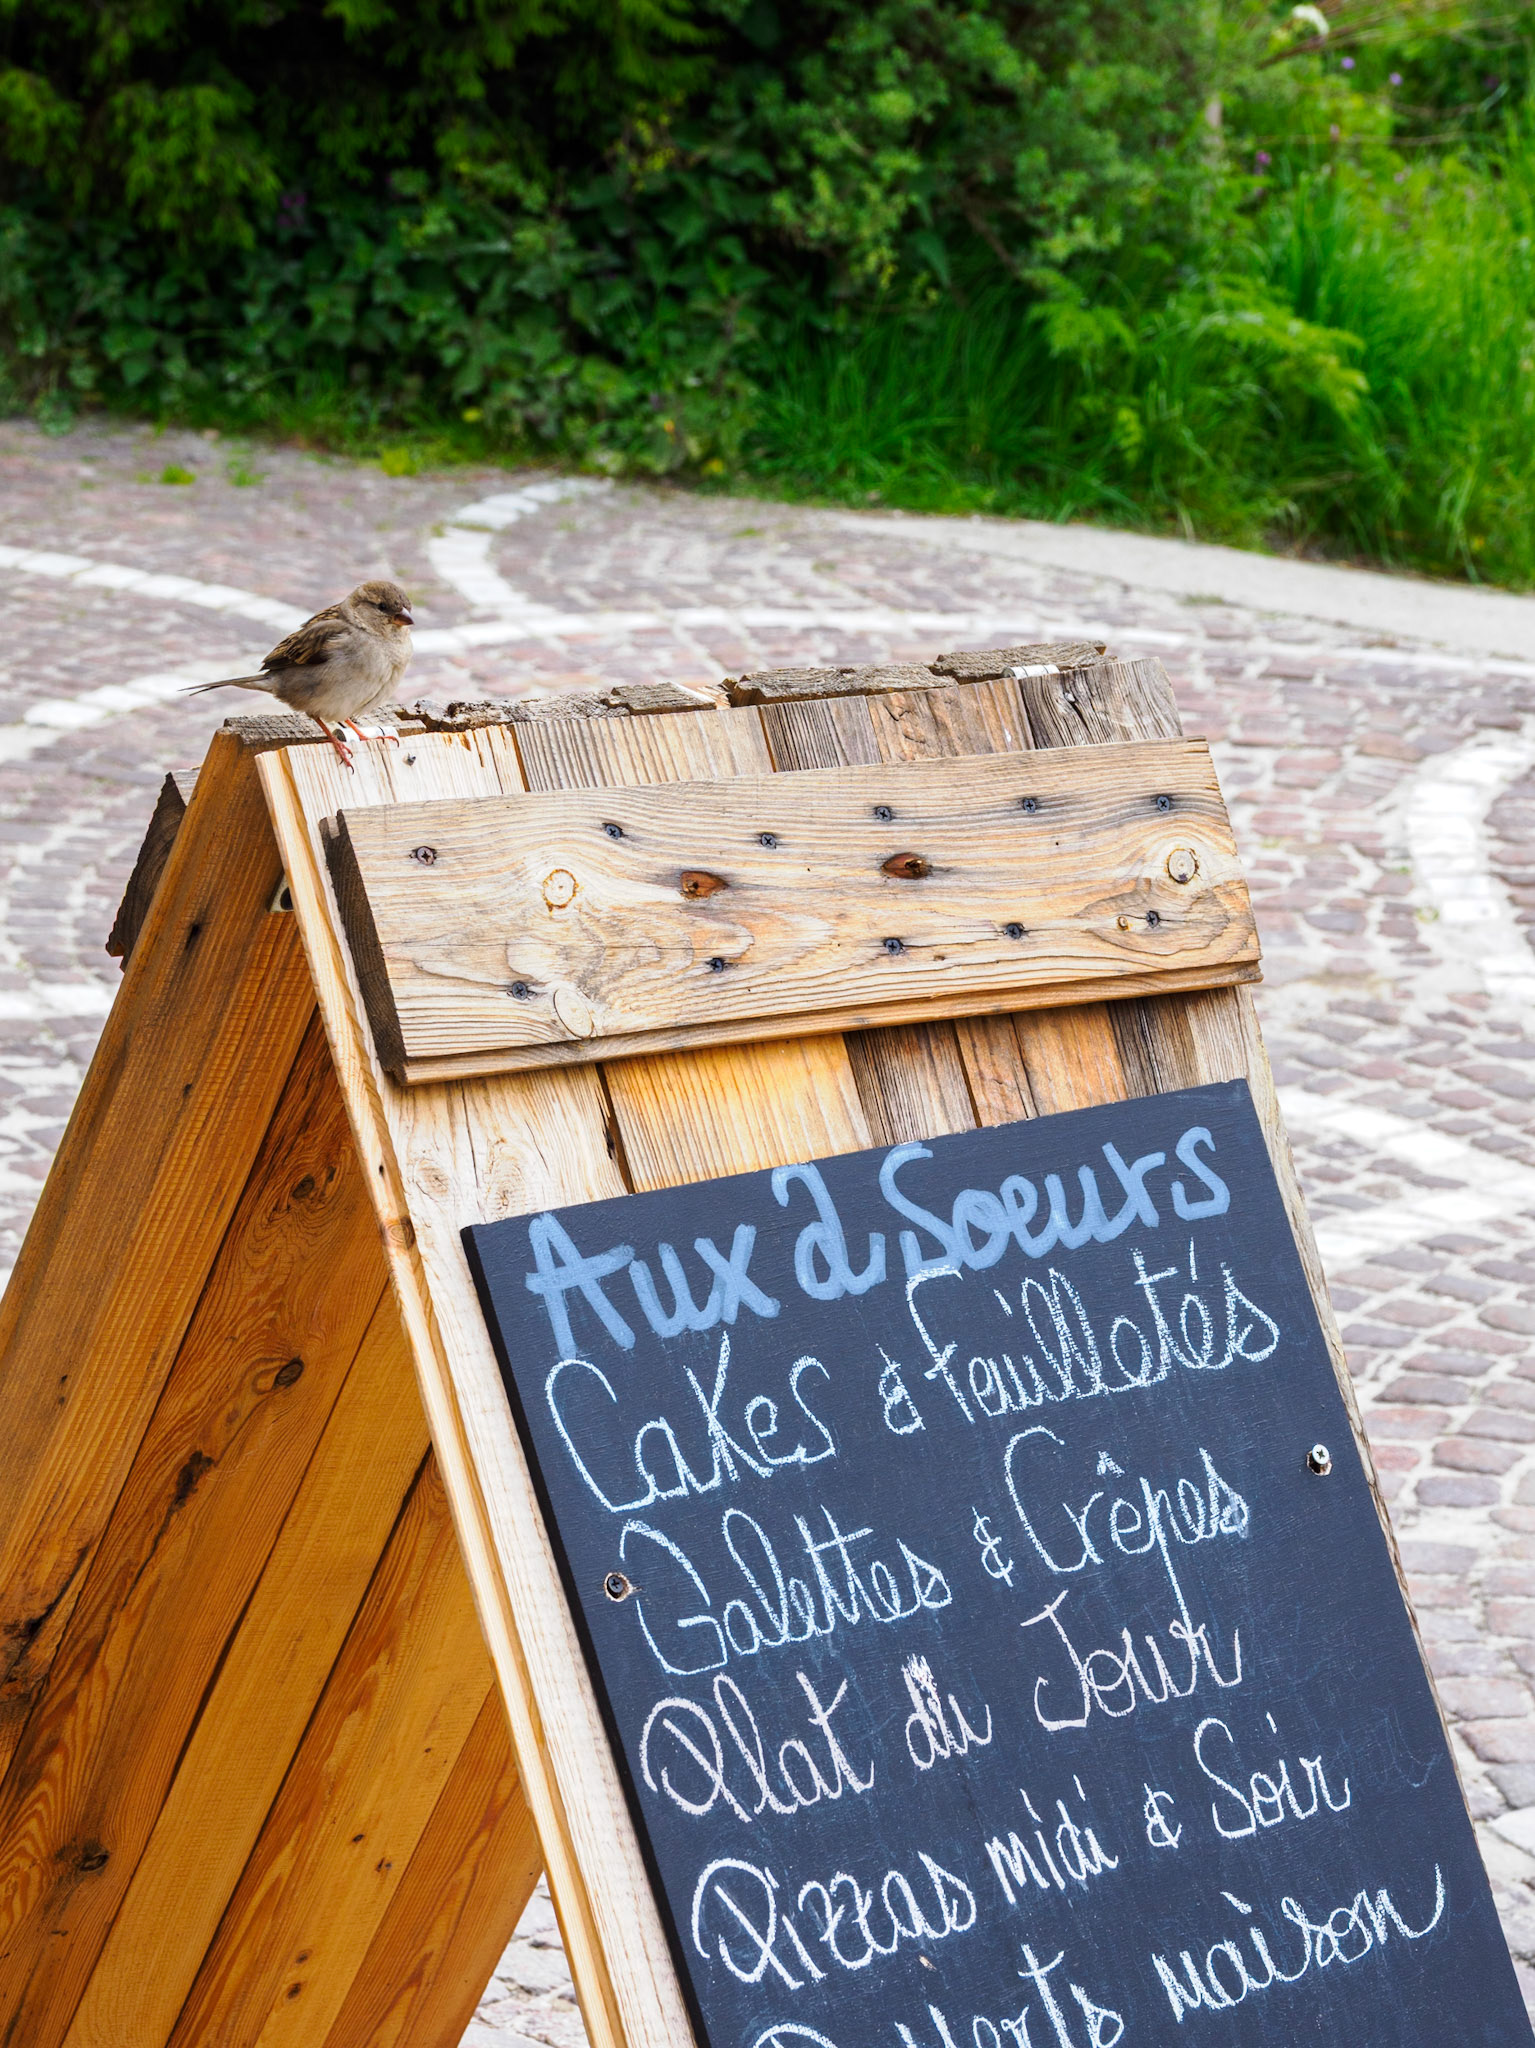 Aux 2 Soeurs
Cakes & Feuilletés
Galettes & Crêpes
Plat du Jour
Pizzas midi & Soir
Desserts maison